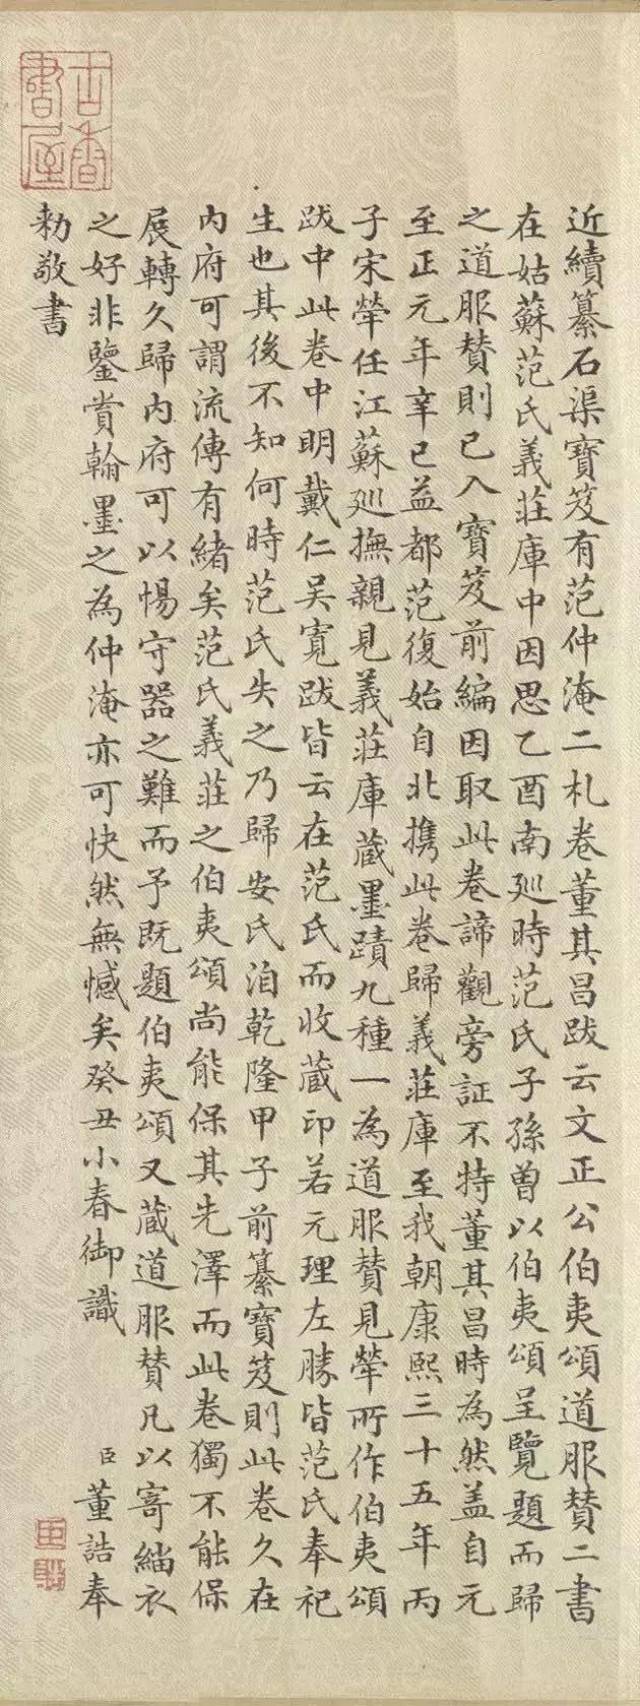 近續纂石渠寶笈有范仲淹二札卷董其昌跋云文正公伯夷頌道服贊二書
在姑蘇范氏義莊庫中因思乙酉南廵時范氏子孫曾以伯夷頌呈覽題而歸
之道服贊則已入寶笈前編因取此卷諦觀旁証不特董其昌時為然盖自元
至正元年辛巳益都范復始自北携此卷歸義莊庫至我朝康熙三十五年丙
子宋犖任江蘇廵撫親見義莊庫蔵墨蹟九種一為道服贊見犖所作伯夷頌
跋中此卷中明戴仁吴寬跋皆云在范氏而收蔵印若元理左勝皆范氏奉祀
生也其後不知何時范氏失之乃歸安氏洎乾隆甲子前纂寶笈則此卷久在
內府可謂流傳有緒矣范氏義莊之伯夷頌尚能保其先澤而此卷獨不能保
展轉久歸內府可以惕守器之難而予既題伯夷頌又蔵道服贊凡以寄緇衣
之好非鑒賞翰墨之為仲淹亦可快然無憾矣癸丑小春御識
臣董誥奉
勅敬書
古香書屋